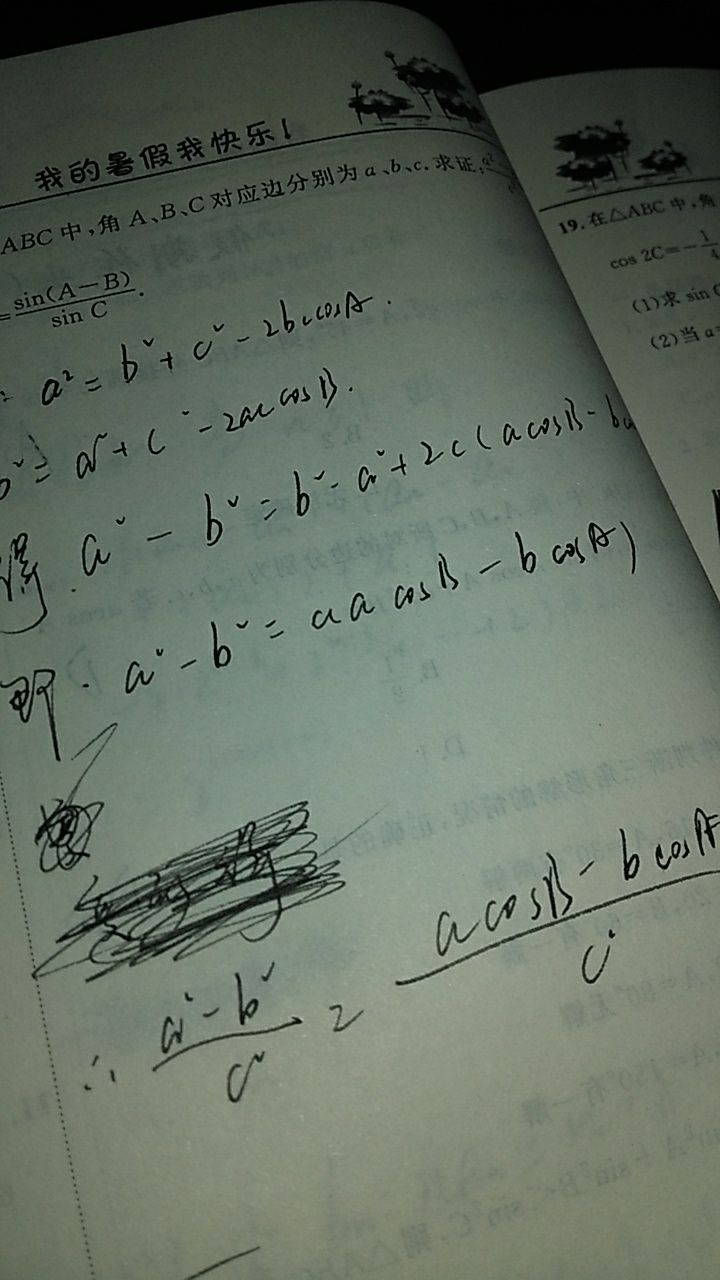 我的暑假我快乐!
ABC中,角A、B、C对应边分别为a、b、c.求证:
=sin(A-B)/sin C.
a²=b²+c²-2bccosA.
b²=a²+c²-2accosB.
得.a²-b²=b²-a²+2c(acosB-b
即.a²-b²=c(acosB-bcosA)
∴(a²-b²)/c²=(acosB-bcosA)/c
19.在△ABC中,角
cos 2C=-1/4
(1)求sin
(2)当a=